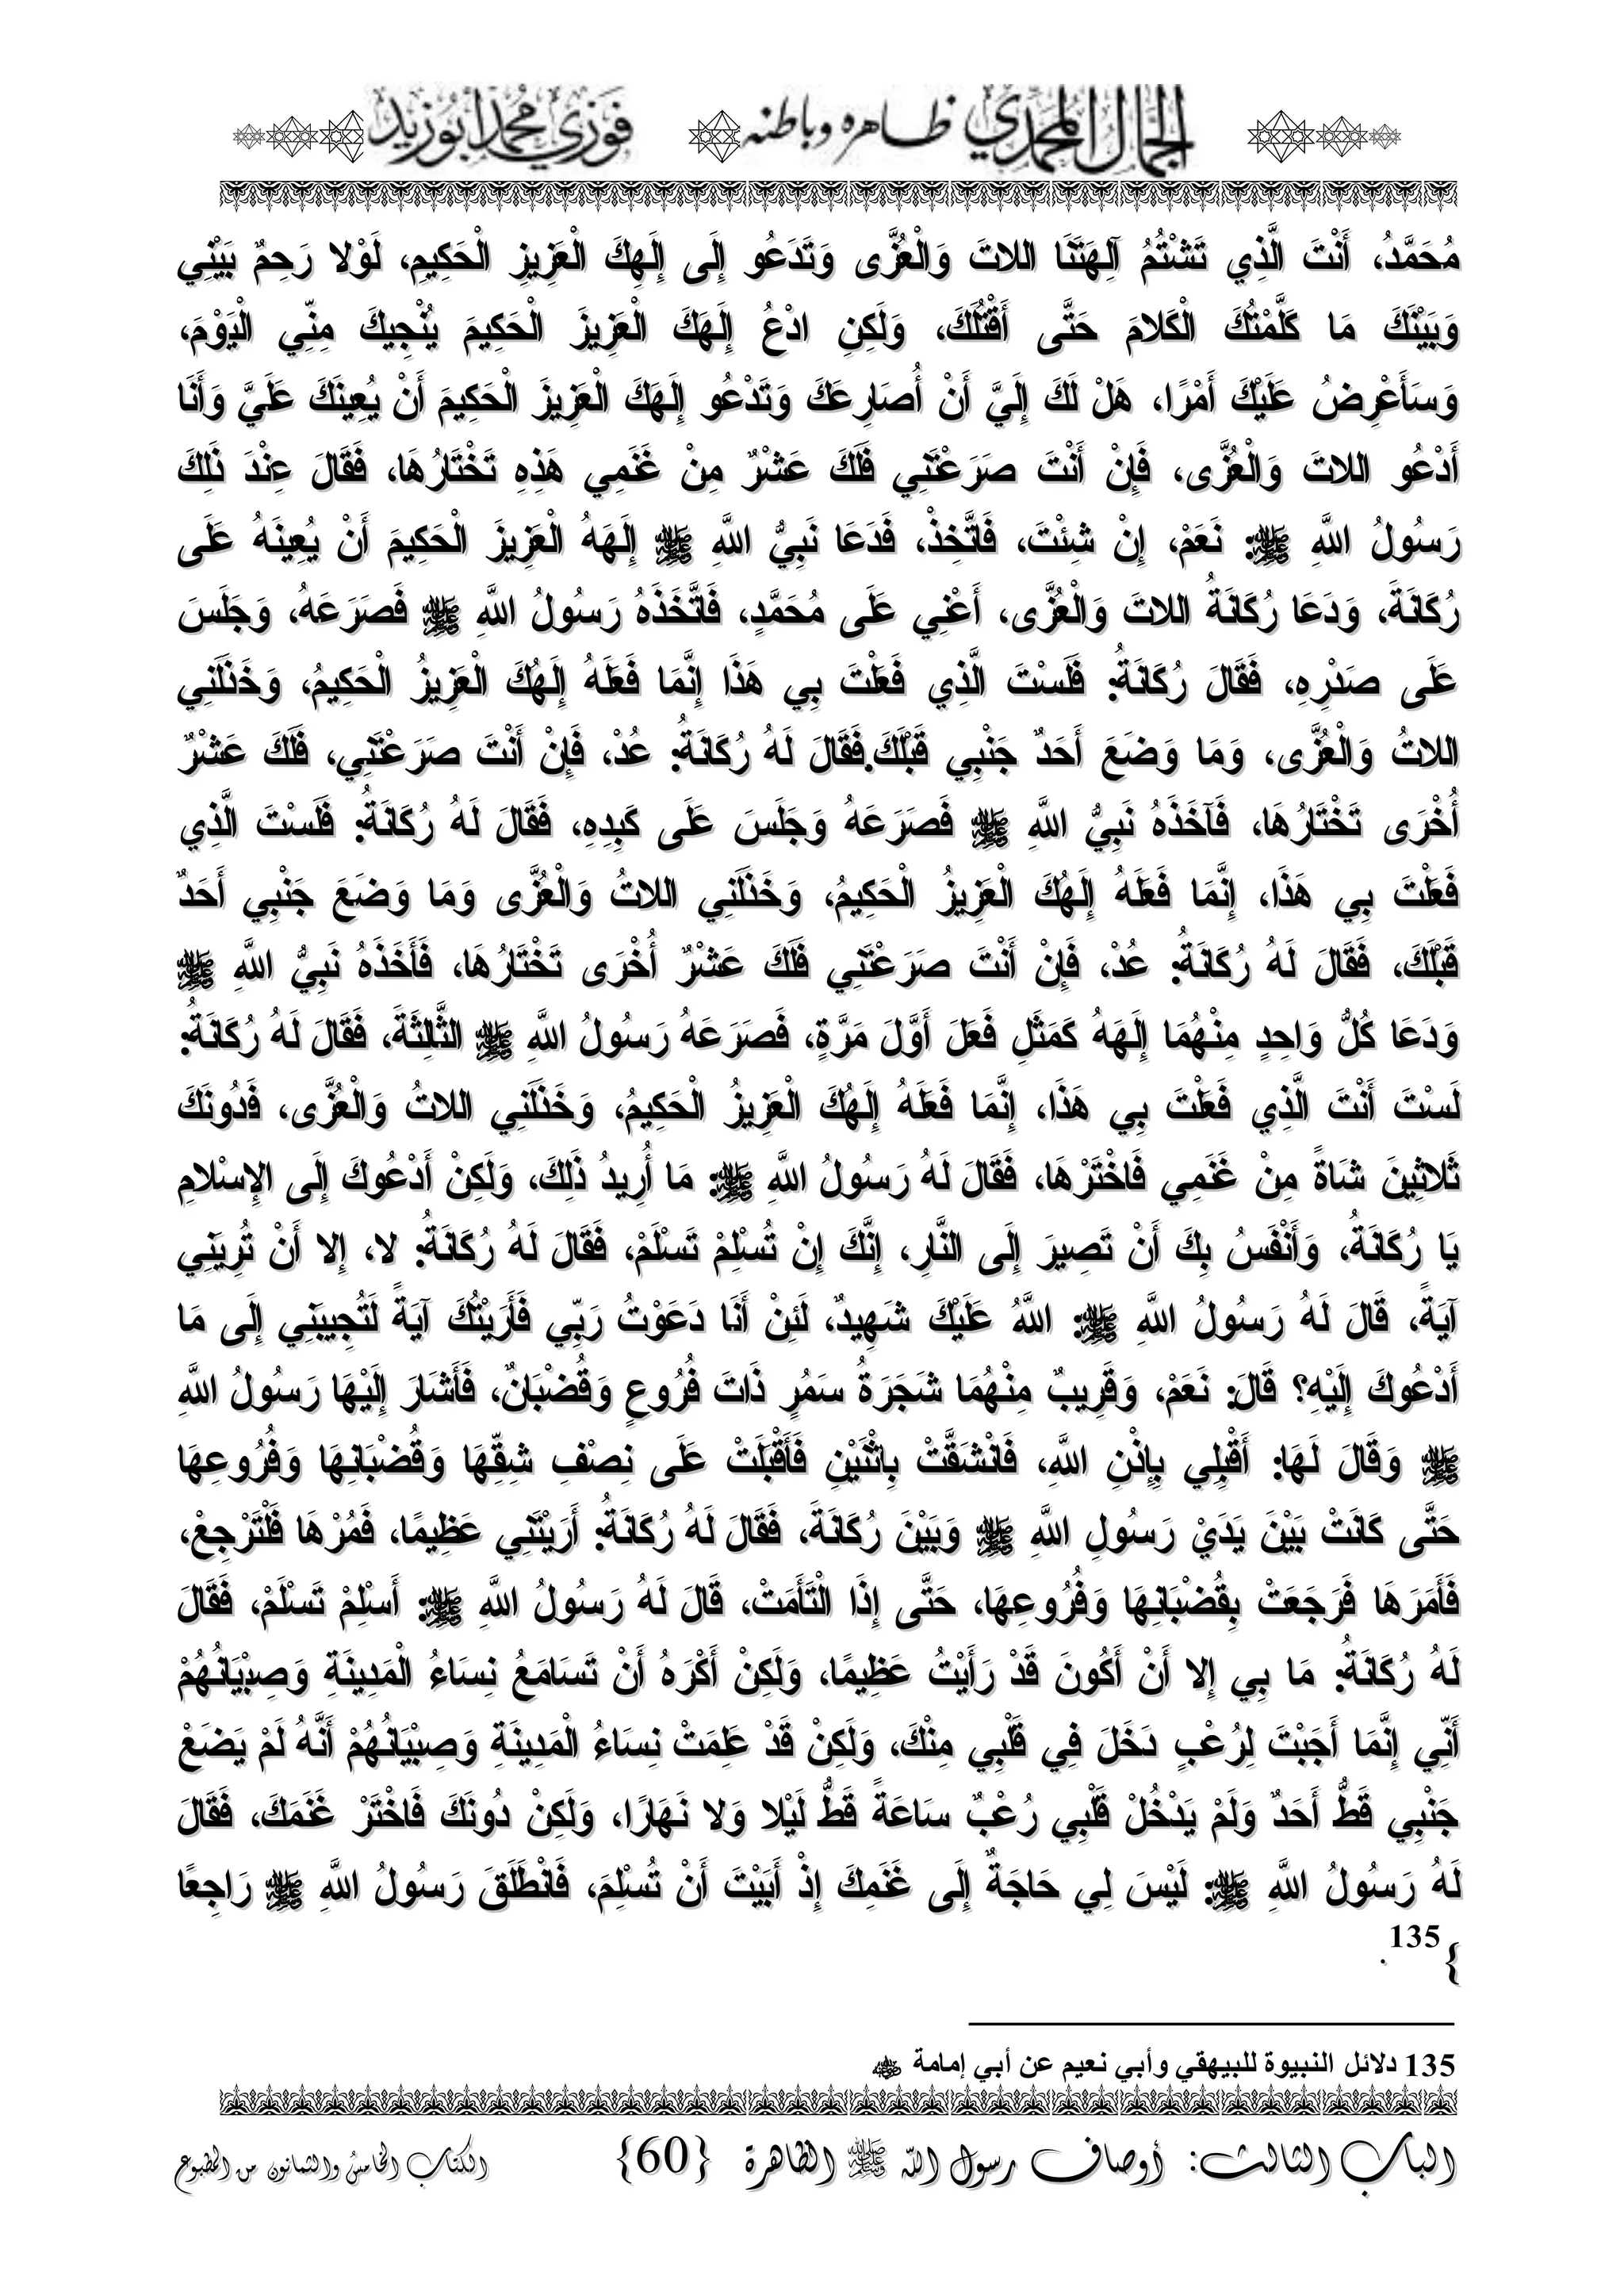 الجمال المحمدي ظاهره وباطنه فوزي محمد أبوزيد
مُحَمَّدُ، أَنْتَ الَّذِي تَشْتُمُ آلِهَتَنَا اللاتَ وَالْعُزَّى وَتَدَعُو إِلَى إِلَهِكَ الْعَزِيزِ الْحَكِيمِ، لَوْلا رَحِمٌ بَيْنِي
وَبَيْنَكَ مَا كَلَّمْتُكَ الْكَلامَ حَتَّى أَقْتُلَكَ، وَلَكِنِ ادْعُ إِلَهَكَ الْعَزِيزَ الْحَكِيمَ يُنْجِيكَ مِنِّي الْيَوْمَ،
وَسَأَعْرِضُ عَلَيْكَ أَمْرًا، هَلْ لَكَ إِلَيَّ أَنْ أُصَارِعَكَ وَتَدْعُو إِلَهَكَ الْعَزِيزَ الْحَكِيمَ أَنْ يُعِينَكَ عَلَيَّ وَأَنَا
أَدْعُو اللاتَ وَالْعُزَّى، فَإِنْ أَنْتَ صَرَعْتَنِي فَلَكَ عَشْرٌ مِنْ غَنَمِي هَذِهِ تَخْتَارُهَا، فَقَالَ عِنْدَ ذَلِكَ
رَسُولُ اللَّهِ ﷺ: نَعَمْ، إِنْ شِئْتَ، فَاتَّخِذْ، فَدَعَا نَبِيُّ اللَّهِ ﷺ إِلَهَهُ الْعَزِيزَ الْحَكِيمَ أَنْ يُعِينَهُ عَلَى
رُكَانَةَ، وَدَعَا رُكَانَةُ اللاتَ وَالْعُزَّى، أَعْنِي عَلَى مُحَمَّدٍ، فَاتَّخَذَهُ رَسُولُ اللَّهِ ﷺ فَصَرَعَهُ، وَجَلَسَ
عَلَى صَدْرِهِ، فَقَالَ رُكَانَةُ: فَلَسْتَ الَّذِي فَعَلْتَ بِي هَذَا إِنَّمَا فَعَلَهُ إِلَهُكَ الْعَزِيزُ الْحَكِيمُ، وَخَذَلَنِي
اللاتُ وَالْعُزَّى، وَمَا وَضَعَ أَحَدٌ جَنْبِي قَبْلَكَ.فَقَالَ لَهُ رُكَانَةُ: عُدْ، فَإِنْ أَنْتَ صَرَعْتَنِي، فَلَكَ عَشْرٌ
أُخْرَى تَخْتَارُهَا، فَآخَذَهُ نَبِيُّ اللَّهِ ﷺ فَصَرَعَهُ وَجَلَسَ عَلَى كَبِدِهِ، فَقَالَ لَهُ رُكَانَةُ: فَلَسْتَ الَّذِي
فَعَلْتَ بِي هَذَا، إِنَّمَا فَعَلَهُ إِلَهُكَ الْعَزِيزُ الْحَكِيمُ، وَخَذَلَنِي اللاتُ وَالْعُزَّى وَمَا وَضَعَ جَنْبِي أَحَدٌ
قَبْلَكَ، فَقَالَ لَهُ رُكَانَةُ: عُدْ، فَإِنْ أَنْتَ صَرَعْتَنِي فَلَكَ عَشْرٌ أُخْرَى تَخْتَارُهَا، فَأَخَذَهُ نَبِيُّ اللَّهِ ﷺ
وَدَعَا كُلُّ وَاحِدٍ مِنْهُمَا إِلَهَهُ كَمَثَلِ فَعَلَ أَوَّلَ مَرَّةٍ، فَصَرَعَهُ رَسُولُ اللَّهِ ﷺ الثَّالِثَةَ، فَقَالَ لَهُ رُكَانَةُ:
لَسْتَ أَنْتَ الَّذِي فَعَلْتَ بِي هَذَا، إِنَّمَا فَعَلَهُ إِلَهُكَ الْعَزِيزُ الْحَكِيمُ، وَخَذَلَنِي اللاتُ وَالْعُزَّى، فَدُونَكَ
ثَلاثِينَ شَاةً مِنْ غَنَمِي فَاخْتَرْهَا، فَقَالَ لَهُ رَسُولُ اللَّهِ ﷺ: مَا أُرِيدُ ذَلِكَ، وَلَكِنْ أَدْعُوكَ إِلَى الإِسْلامِ
يَا رُكَانَةُ، وَأَنْفَسُ بِكَ أَنْ تَصِيرَ إِلَى النَّارِ، إِنَّكَ إِنْ تُسْلِمْ تَسْلَمْ، فَقَالَ لَهُ رُكَانَةُ: لا، إِلا أَنْ تُرِيَنِي
آيَةً، قَالَ لَهُ رَسُولُ اللَّهِ ﷺ: اللَّهُ عَلَيْكَ شَهِيدٌ، لَئِنْ أَنَا دَعَوْتُ رَبِّي فَأَرَيْتُكَ آيَةً لَتُجِيبَنِي إِلَى مَا
أَدْعُوكَ إِلَيْهِ؟ قَالَ: نَعَمْ، وَقَرِيبٌ مِنْهُمَا شَجَرَةُ سَمُرٍ ذَاتَ فُرُوعٍ وَقُضْبَانٌ، فَأَشَارَ إِلَيْهَا رَسُولُ اللَّهِ
ﷺ وَقَالَ لَهَا: أَقْبِلِي بِإِذْنِ اللَّهِ، فَانْشَقَّتْ بِاثْنَيْنِ فَأَقْبَلَتْ عَلَى نِصْفِ شِقِّهَا وَقُضْبَانِهَا وَفُرُوعِهَا
حَتَّى كَانَتْ بَيْنَ يَدَيْ رَسُولِ اللَّهِ ﷺ وَبَيْنَ رُكَانَةَ، فَقَالَ لَهُ رُكَانَةُ: أَرَيْتَنِي عَظِيمًا، فَمُرْهَا فَلْتَرْجِعْ،
فَأَمَرَهَا فَرَجَعَتْ بِقُضْبَانِهَا وَفُرُوعِهَا، حَتَّى إِذَا الْتَأَمَتْ، قَالَ لَهُ رَسُولُ اللَّهِ ﷺ: أَسْلِمْ تَسْلَمْ، فَقَالَ
لَهُ رُكَانَةُ: مَا بِي إِلا أَنْ أَكُونَ قَدْ رَأَيْتُ عَظِيمًا، وَلَكِنْ أَكْرَهُ أَنْ تَسَامَعُ نِسَاءُ الْمَدِينَةِ وَصِبْيَانُهُمْ
أَنِّي إِنَّمَا أَجَبْتَ لِرُعْبٍ دَخَلَ فِي قَلْبِي مِنْكَ، وَلَكِنْ قَدْ عَلِمَتْ نِسَاءُ الْمَدِينَةِ وَصِبْيَانُهُمْ أَنَّهُ لَمْ يَضَعْ
جَنْبِي قَطُّ أَحَدٌ وَلَمْ يَدْخُلْ قَلْبِي رُعْبٌ سَاعَةً قَطُّ لَيْلا وَلا نَهَارًا، وَلَكِنْ دُونَكَ فَاخْتَرْ غَنَمَكَ، فَقَالَ
لَهُ رَسُولُ اللَّهِ ﷺ: لَيْسَ لِي حَاجَةٌ إِلَى غَنَمِكَ إِذْ أَبَيْتَ أَنْ تُسْلِمَ، فَانْطَلَقَ رَسُولُ اللَّهِ ﷺ رَاجِعًا
}135.
135 دلائل النبيوة للبيهقي وأبي نعيم عن أبي إمامة ﷺ
الباب الثالث: أوصاف رسول الله ﷺ الظاهرة {60} الكتاب الخامس والثمانون من المطبوع